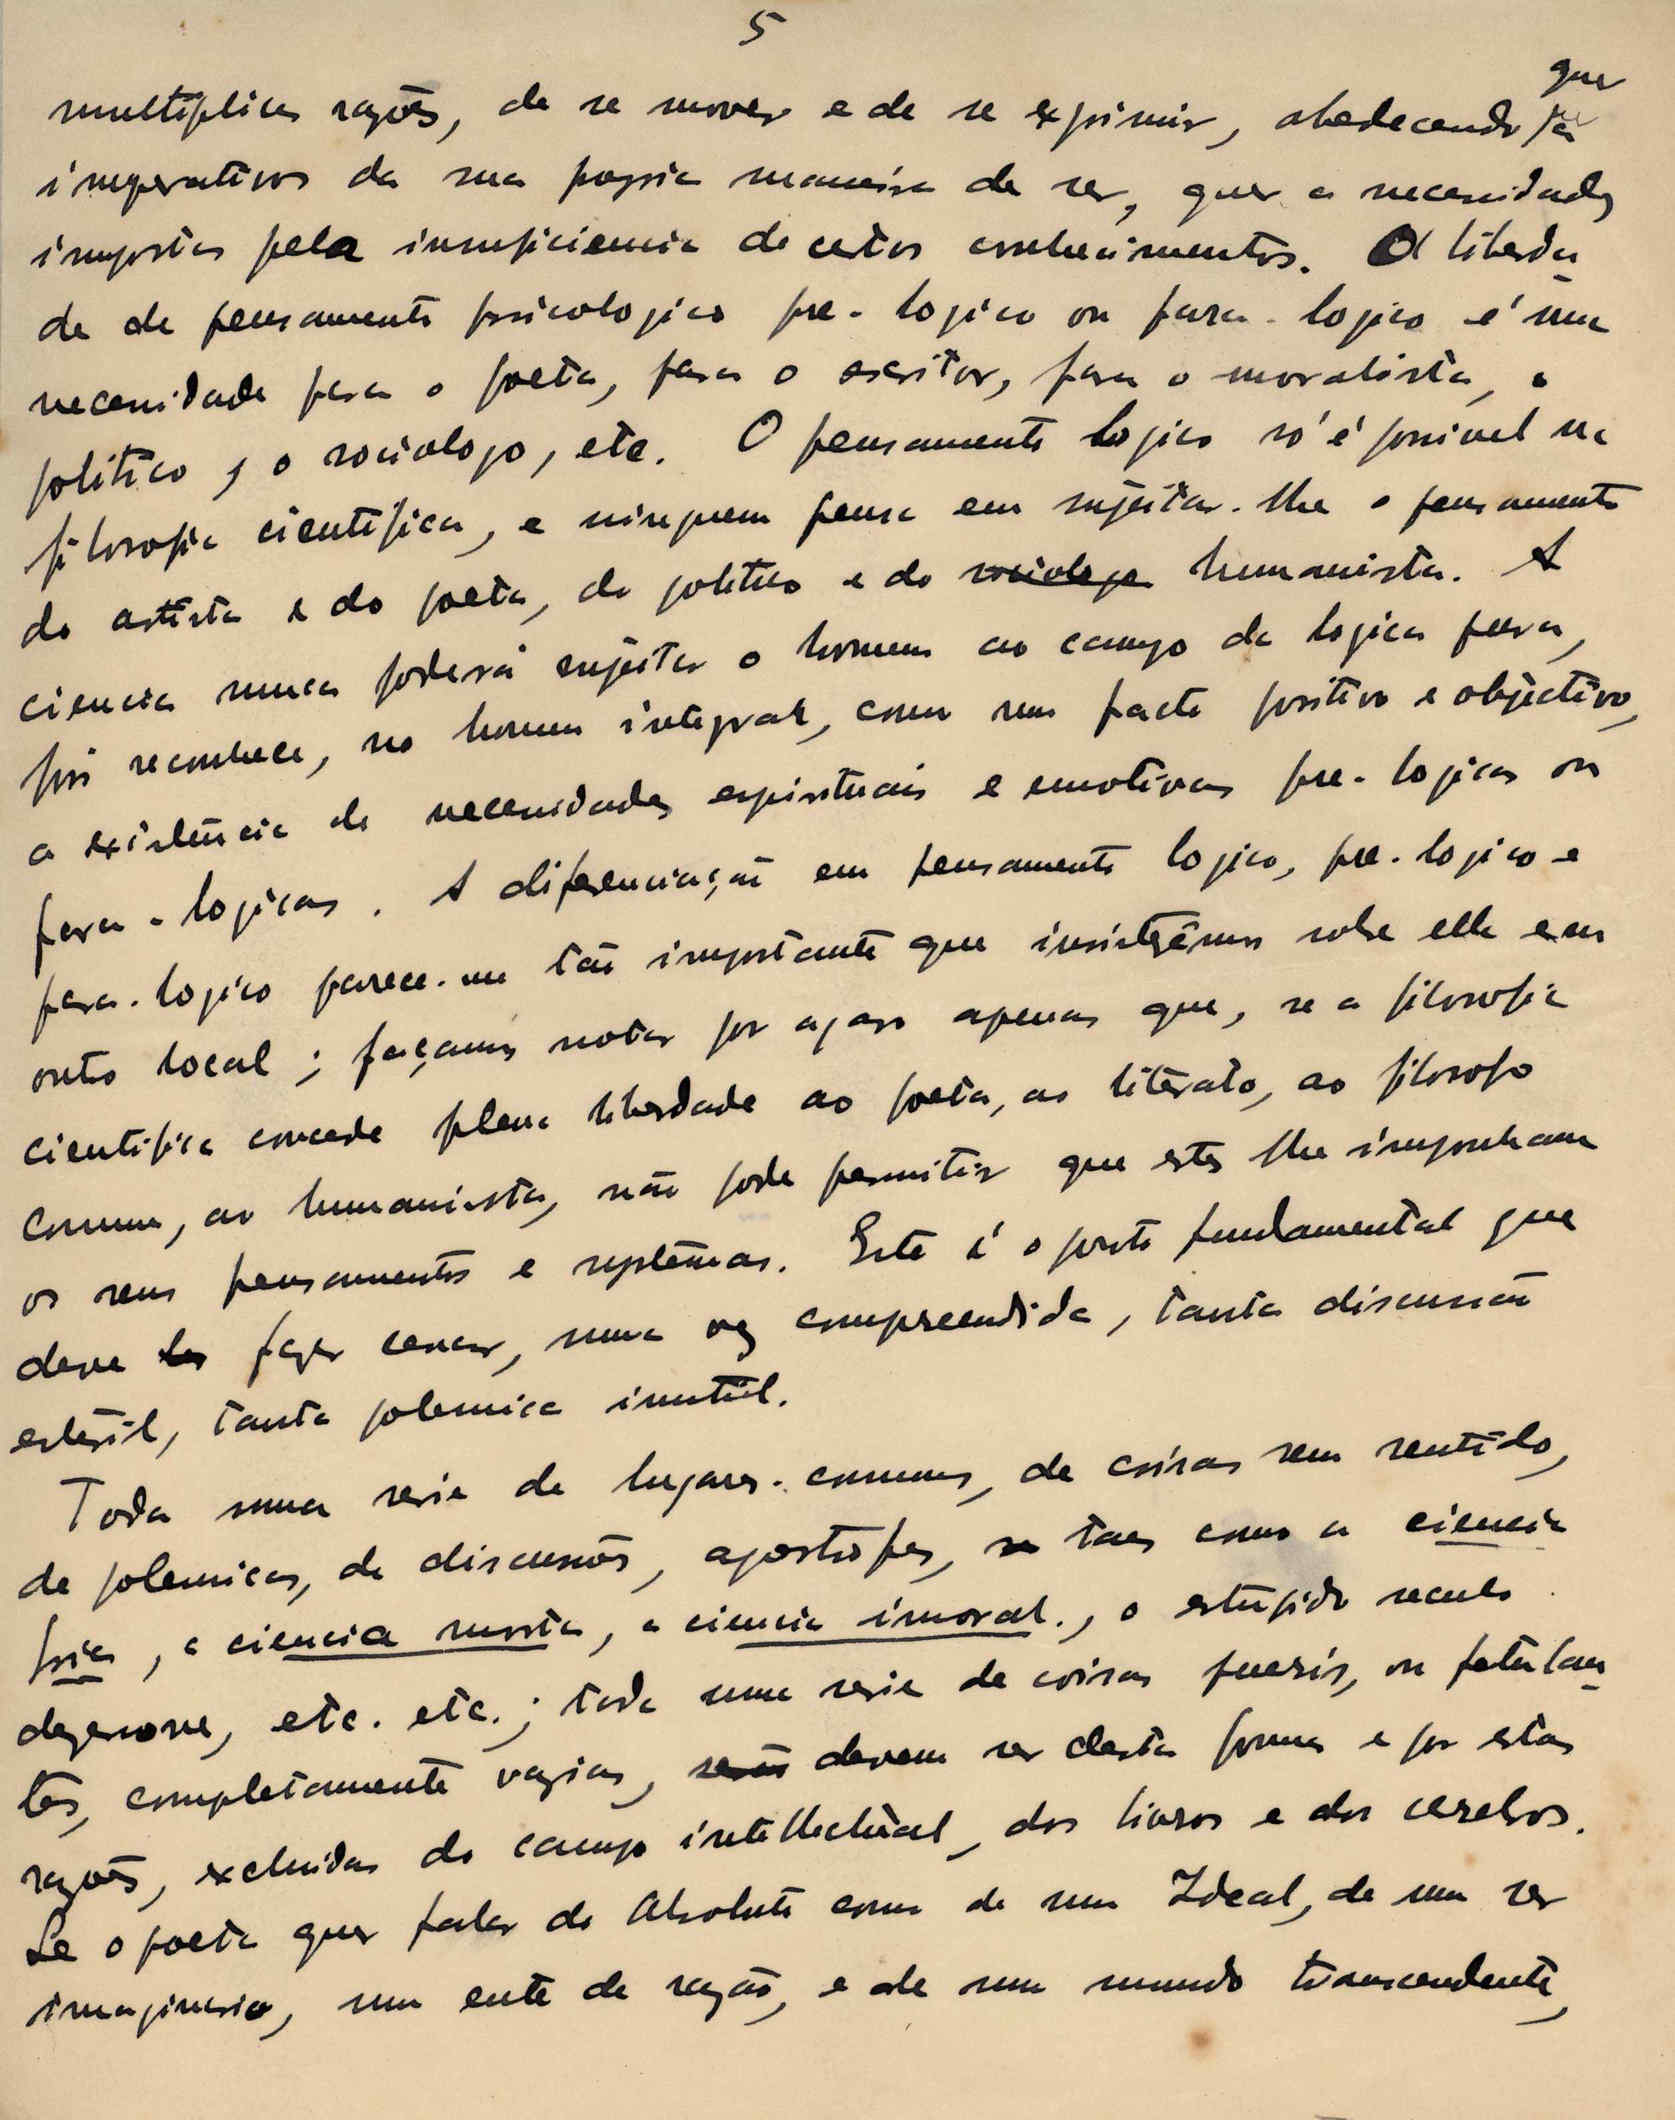 5
multiplices razões, de se mover e de se exprimir, obedecendo quer a
imperativos da sua propria maneira de ser, quer a necessidades
impostas pela insuficiencia de certos conhecimentos. A liberda-
de de pensamento psicologico pre-logico ou para-logico é uma
necessidade para o poeta, para o escritor, para o moralista, o
politico, o sociologo, etc. O pensamento logico só é possivel na
filosofia cientifica, e ninguem pensa em sujeitar-lhe o pensamento
do artista e do poeta, do politico e do sociologo humanista. A
ciencia nunca poderá sujeitar o homem ao campo da logica pura,
pois reconhece, no homem integral, como um facto positivo e objectivo,
a existência de necessidades espirituais e emotivas pre-logicas ou
para-logicas. A diferenciação em pensamento logico, pre-logico e
para-logico parece-me tão importante que insistirêmos sobre elle em
outro local; façamos notar por agora apenas que, se a filosofia
cientifica concede plena liberdade ao poeta, ao literato, ao filosofo
comum, ao humanista, não pode permitir que estes lhe imponham
os seus pensamentos e systêmas. Este é o ponto fundamental que
deve fazer cessar, uma vez compreendida, tanta discussão
esteril, tanta polemica inutil.
Toda uma serie de lugares-comuns, de coisas sem sentido,
de polemicas, de discussões, apostrofes, taes como a ciencia
fria, a ciencia morta, a ciencia imoral., o estupido seculo
dezenove, etc. etc.; toda uma serie de coisas pueris, ou petulan-
tes, completamente vazias, serão devem ser desta forma e por estas
razões, excluidas do campo intellectual, dos livros e dos cerebros.
Se o poeta quer falar do Absoluto como de um Ideal, de um ser
imaginario, um ente de razão, e de um mundo transcendente,